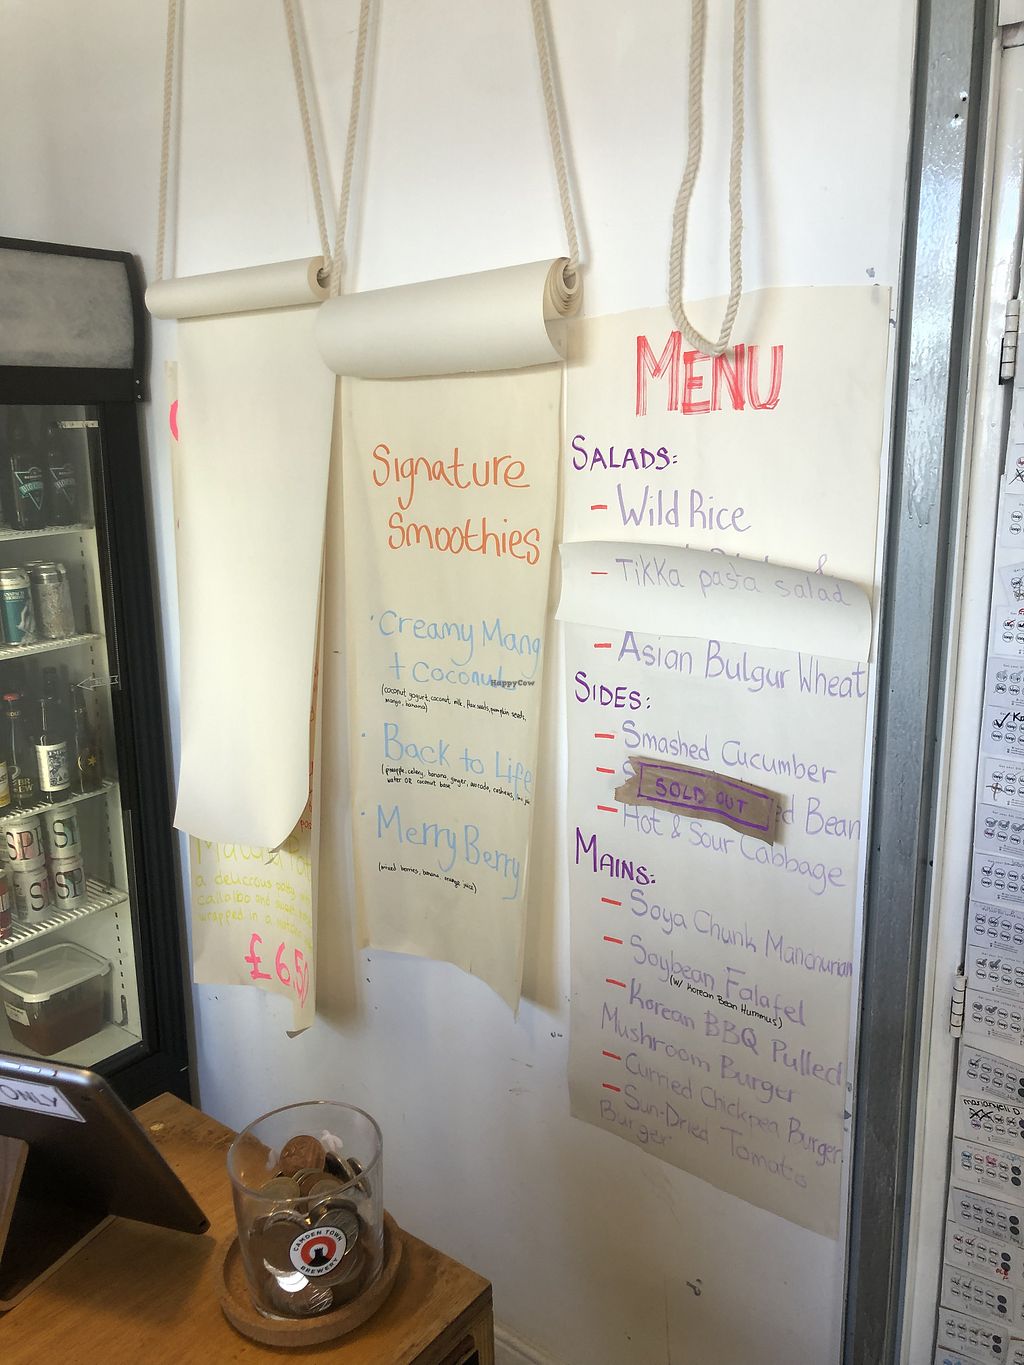 MENU
SALADS:
- Wild Rice
- Tikka pasta salad
- Asian Bulgur Wheat
SIDES:
- Smashed Cucumber
- S
SOLD OUT
ed Bean
- Hot & Sour Cabbage
MAINS:
- Soya Chunk Manchurian
- Soybean Falafel
(w/ Korean Bean Hummus)
- Korean BBQ Pulled
Mushroom Burger
- Curried Chickpea Burger
- Sun-Dried Tomato
Burger
Signature
Smoothies
· Creamy Mang
+ Coconut
(coconut yogurt, coconut milk, flax seeds, pumpkin seeds,
mango, banana)
· Back to Life
(pineapple, celery, banana, ginger, avocado, cashews,
water OR coconut base
· Merry Berry
(mixed berries, banana, orange juice)
a delicious patty
callaloo and sweet
wrapped in a
£6.50
HappyCow
ONLY
CAMDEN TOWN
BREWERY